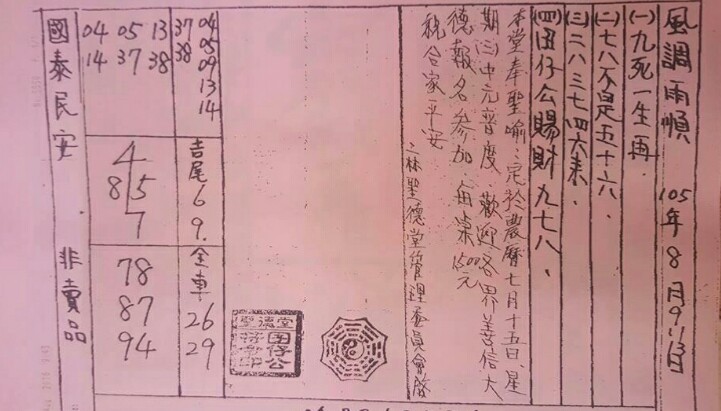 風調雨順 105年8月9、11、13日
(一)九死一生再、
(二)七八不是五十六、
(三)二八三七四六来、
(四)囝仔公賜財九七八、
本堂奉聖喻、定於農曆七月十五日、星
期(三)中元普度、歡迎各界善信大
德報名參加、每桌1500元
祝合家平安
二林聖德堂管理委員會啓
聖德堂
囝仔公
37 04
38 05
09
13
14
04 05 13
14 37 38
吉尾
6
9.
4
8 5
7
全車
26
29
78
87
94
國泰民安 非賣品